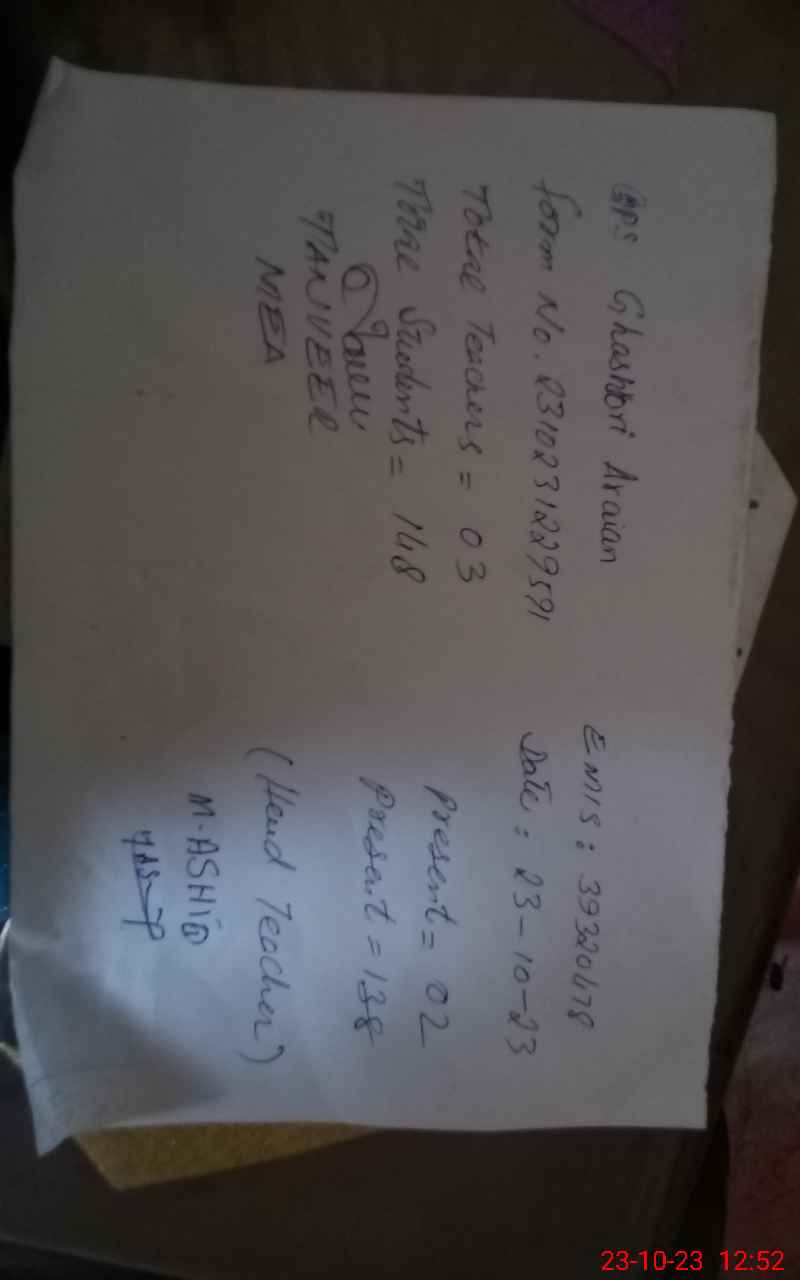 GPS Ghashtori Araian EMIS: 39320478
form No. 231023122959​1 Date: 23-10-23
Total Teachers = 03 Present = 02
Total Students = 148 Present = 138
TANVEER (Head Teacher)
MEA M. ASHIQ
23-10-23 12:52